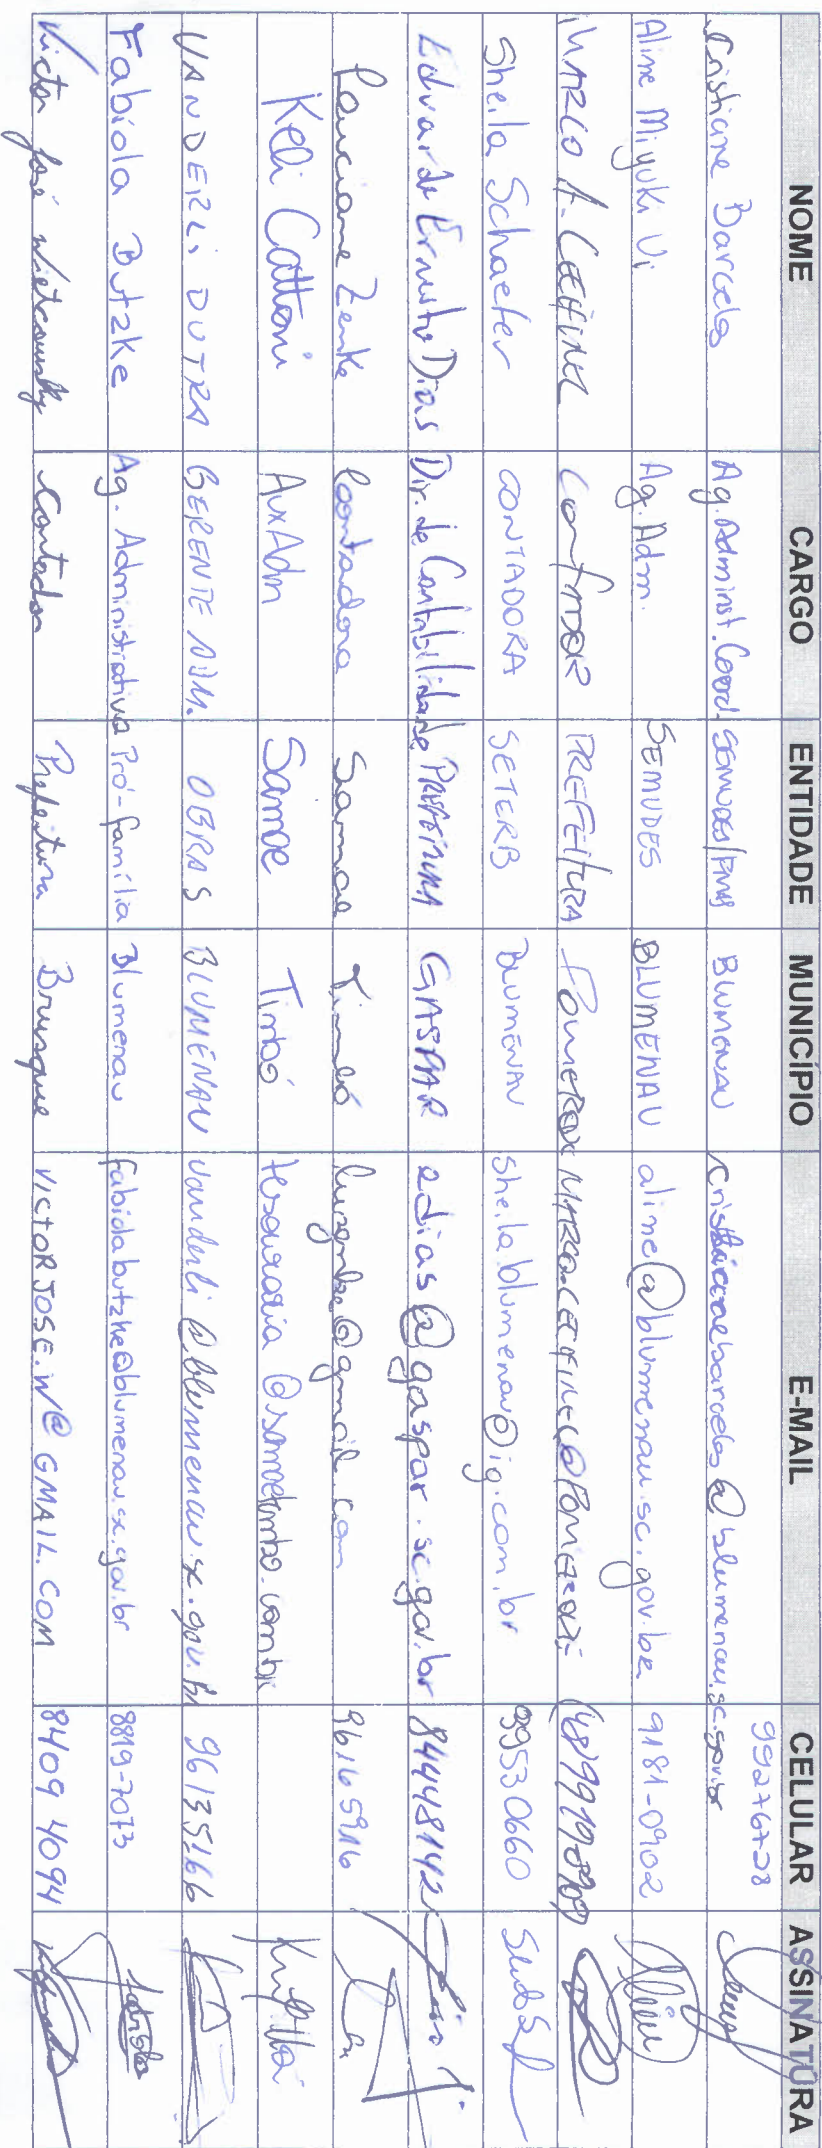 NOME CARGO ENTIDADE MUNICÍPIO E-MAIL CELULAR ASSINATURA
Cristiane Barcelos Ag. Administ. Coord. SEMUDES/ BLUMENAU @blumenau.sc.gov.br 99276728
Aline Miyuki Ui Ag. Adm. SEMUDES BLUMENAU aline@blumenau.sc.gov.br 9181-0902
MARCO A. Contador PREFEITURA POMERODE
Sheila Schaefer CONTADORA SETERB BLUMENAU sheila.blumenau@ig.com.br 99530660
Eduardo Ernesto Dias Dir. de Contabilidade PREFEITURA GASPAR edias@gaspar.sc.gov.br 84448142
Luciane Zenke Contadora Samae Timbó @gmail.com 96165916
Keli Cattoni Aux Adm Samae Timbó tesouraria@samaetimbo.com.br
VANDERLI DUTRA GERENTE ADM. OBRAS BLUMENAU vanderli@blumenau.sc.gov.br 96135166
Fabíola Butzke Ag. Administrativa Pró-família Blumenau fabiolabutzke@blumenau.sc.gov.br 8819-7073
Victor José Contador Prefeitura Brusque VICTORJOSE.W@GMAIL.COM 8409 4094